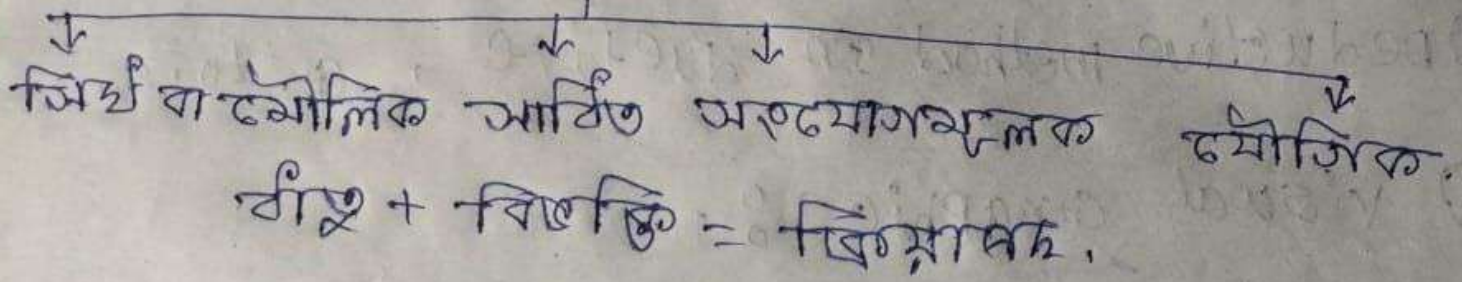 সিদ্ধ বা মৌলিক সাধিত সংযোগমূলক যৌগিক.
ধাতু + বিভক্তি = ক্রিয়াপদ.